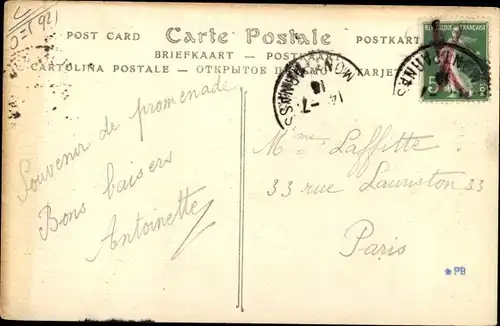 POST CARD
Carte Postale
POSTKART
BRIEFKAART — POST
CARTOLINA POSTALE — ОТКРЫТОЕ
TARJET
RÉPUBLIQUE FRANÇAISE
5
14 - 7
Souvenir de promenade
Bons baisers
Antoinette
Mme Laffitte
33 rue Lauriston 33
Paris
PB